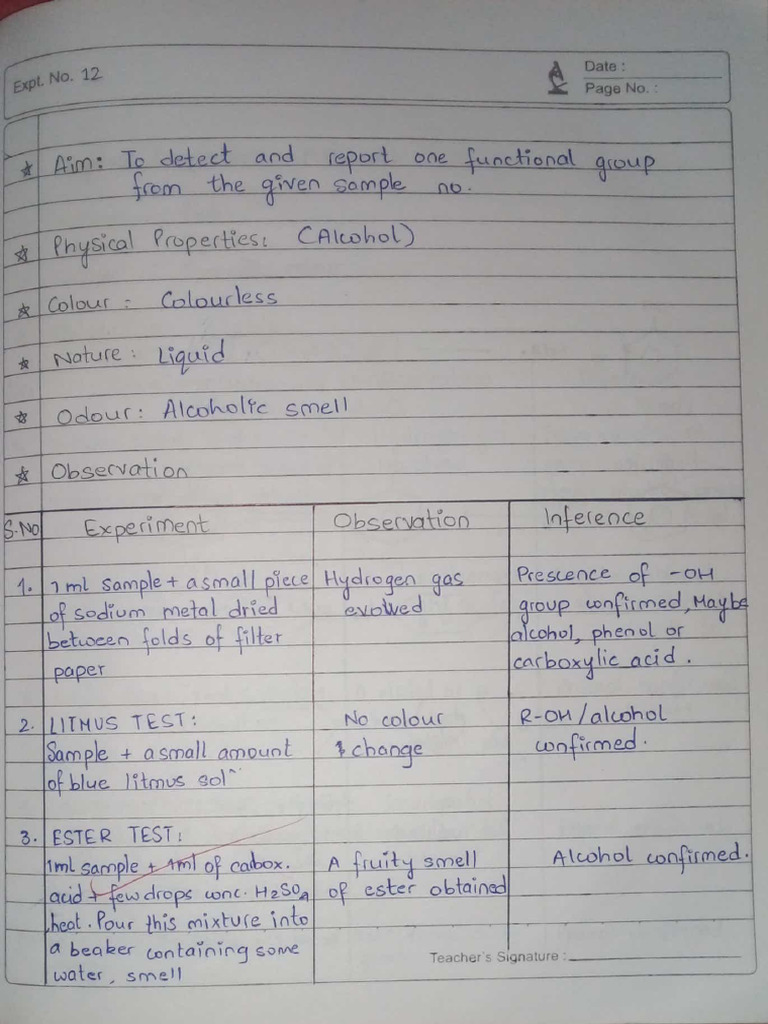 Expt. No. 12
Date :
Page No. :
Aim: To detect and report one functional group
from the given sample no.
Physical Properties: (Alcohol)
Colour : Colourless
Nature : Liquid
Odour : Alcoholic smell
Observation
S.No Experiment Observation Inference
1. 1 ml sample + a small piece
of sodium metal dried
between folds of filter
paper
Hydrogen gas
evolved
Prescence of -OH
group confirmed, Maybe
alcohol, phenol or
carboxylic acid.
2. LITMUS TEST:
Sample + a small amount
of blue litmus solⁿ
No colour
change
R-OH/alcohol
confirmed.
3. ESTER TEST:
1ml sample + 1ml of carbox.
acid + few drops conc. H2SO4
heat. Pour this mixture into
a beaker containing some
water, smell
A fruity smell
of ester obtained
Alcohol confirmed.
Teacher's Signature :